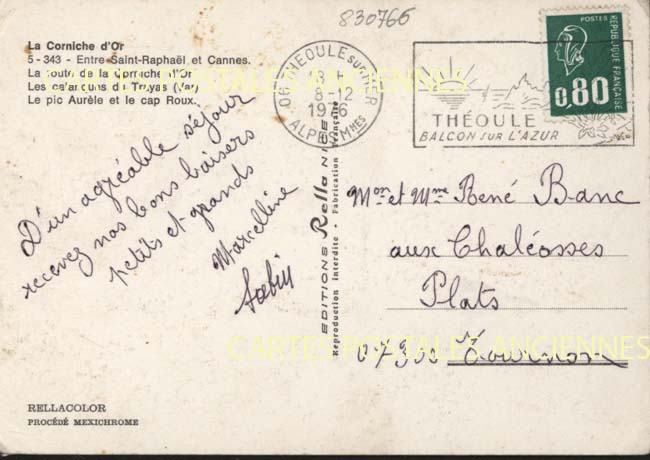 830765
La Corniche d'Or
5 - 343 - Entre Saint-Raphaël et Cannes.
La route de la Corniche d'Or
Les calanques du Trayas (Var)
Le pic Aurèle et le cap Roux.
06 THEOULE sur MER
8-12
1976
ALPES Mmes
THÉOULE
BALCON SUR L'AZUR
POSTES
REPUBLIQUE FRANÇAISE
0,80
CARTES POSTALES ANCIENNES
D'un agréable séjour
recevez nos bons baisers
petits et grands
Marcelline
EDITIONS Rella NICE
Reproduction Interdite • Fabrication Française
Mon et Mme René Banc
aux Chaléosses
Plats
07300 Tournon
CARTES POSTALES ANCIENNES
RELLACOLOR
PROCÉDÉ MEXICHROME